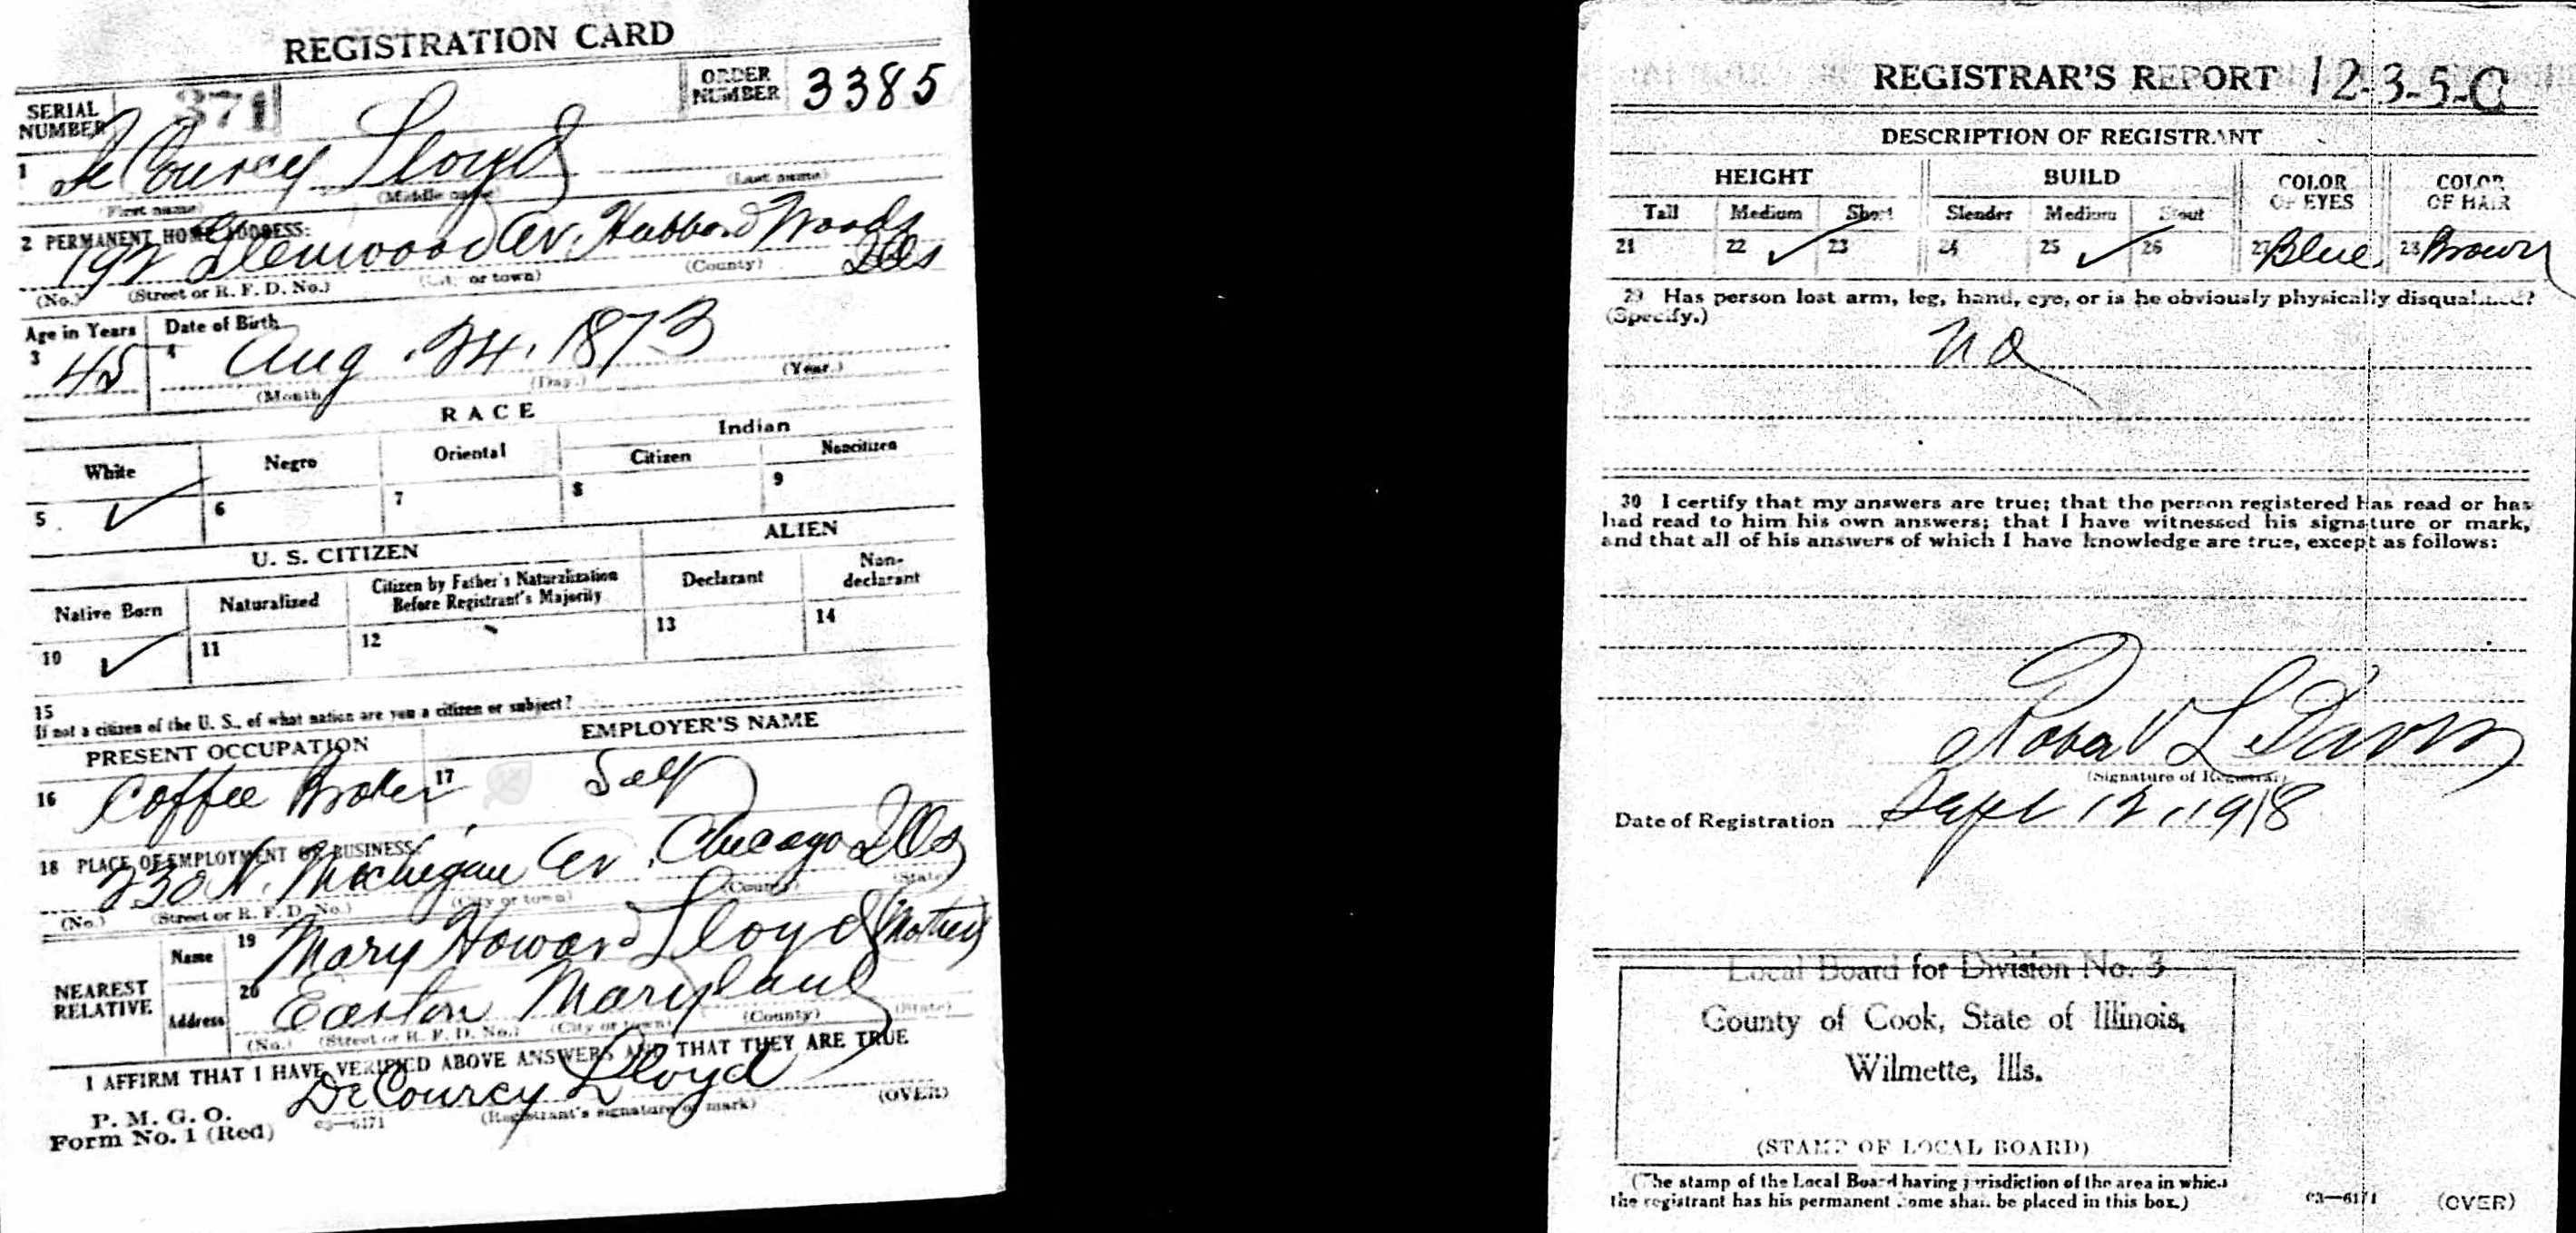 REGISTRATION CARD
SERIAL NUMBER 371 ORDER NUMBER 3385
1 De Courcy Lloyd
(First name) (Middle name) (Last name)
2 PERMANENT HOME ADDRESS:
192 Glenwood Av. Hubbard Woods Ills
(No.) (Street or R. F. D. No.) (City or town) (County)
Age in Years Date of Birth
3 45 4 Aug. 24, 1873
(Month) (Day.) (Year.)
RACE
White Negro Oriental Indian
Citizen Noncitizen
5 ✓ 6 7 8 9
U. S. CITIZEN ALIEN
Native Born Naturalized Citizen by Father's Naturalization Before Registrant's Majority Declarant Non-declarant
10 ✓ 11 12 13 14
15
If not a citizen of the U. S., of what nation are you a citizen or subject?
PRESENT OCCUPATION EMPLOYER'S NAME
16 Coffee Broker 17 Self
18 PLACE OF EMPLOYMENT OR BUSINESS:
230 N. Michigan Av. Chicago Ills
(No.) (Street or R. F. D. No.) (City or town) (County) (State)
NEAREST RELATIVE Name 19 Mary Howard Lloyd (Mother)
Address 20 Easton Maryland
(No.) (Street or R. F. D. No.) (City or town) (County) (State)
I AFFIRM THAT I HAVE VERIFIED ABOVE ANSWERS AND THAT THEY ARE TRUE
P. M. G. O.
Form No. 1 (Red) 03—6171 DeCourcy Lloyd
(Registrant's signature or mark) (OVER)
REGISTRAR'S REPORT 12-3-5-C
DESCRIPTION OF REGISTRANT
HEIGHT BUILD COLOR OF EYES COLOR OF HAIR
Tall Medium Short Slender Medium Stout
21 22 ✓ 23 24 25 ✓ 26 27 Blue 28 Brown
29 Has person lost arm, leg, hand, eye, or is he obviously physically disqualified?
(Specify.)
No
30 I certify that my answers are true; that the person registered has read or has
had read to him his own answers; that I have witnessed his signature or mark,
and that all of his answers of which I have knowledge are true, except as follows:
Robert L Davis
(Signature of Registrar)
Date of Registration Sept 12, 1918
Local Board for Division No. 3
County of Cook, State of Illinois,
Wilmette, Ills.
(STAMP OF LOCAL BOARD)
(The stamp of the Local Board having jurisdiction of the area in which
the registrant has his permanent home shall be placed in this box.)
03—6171 (OVER)